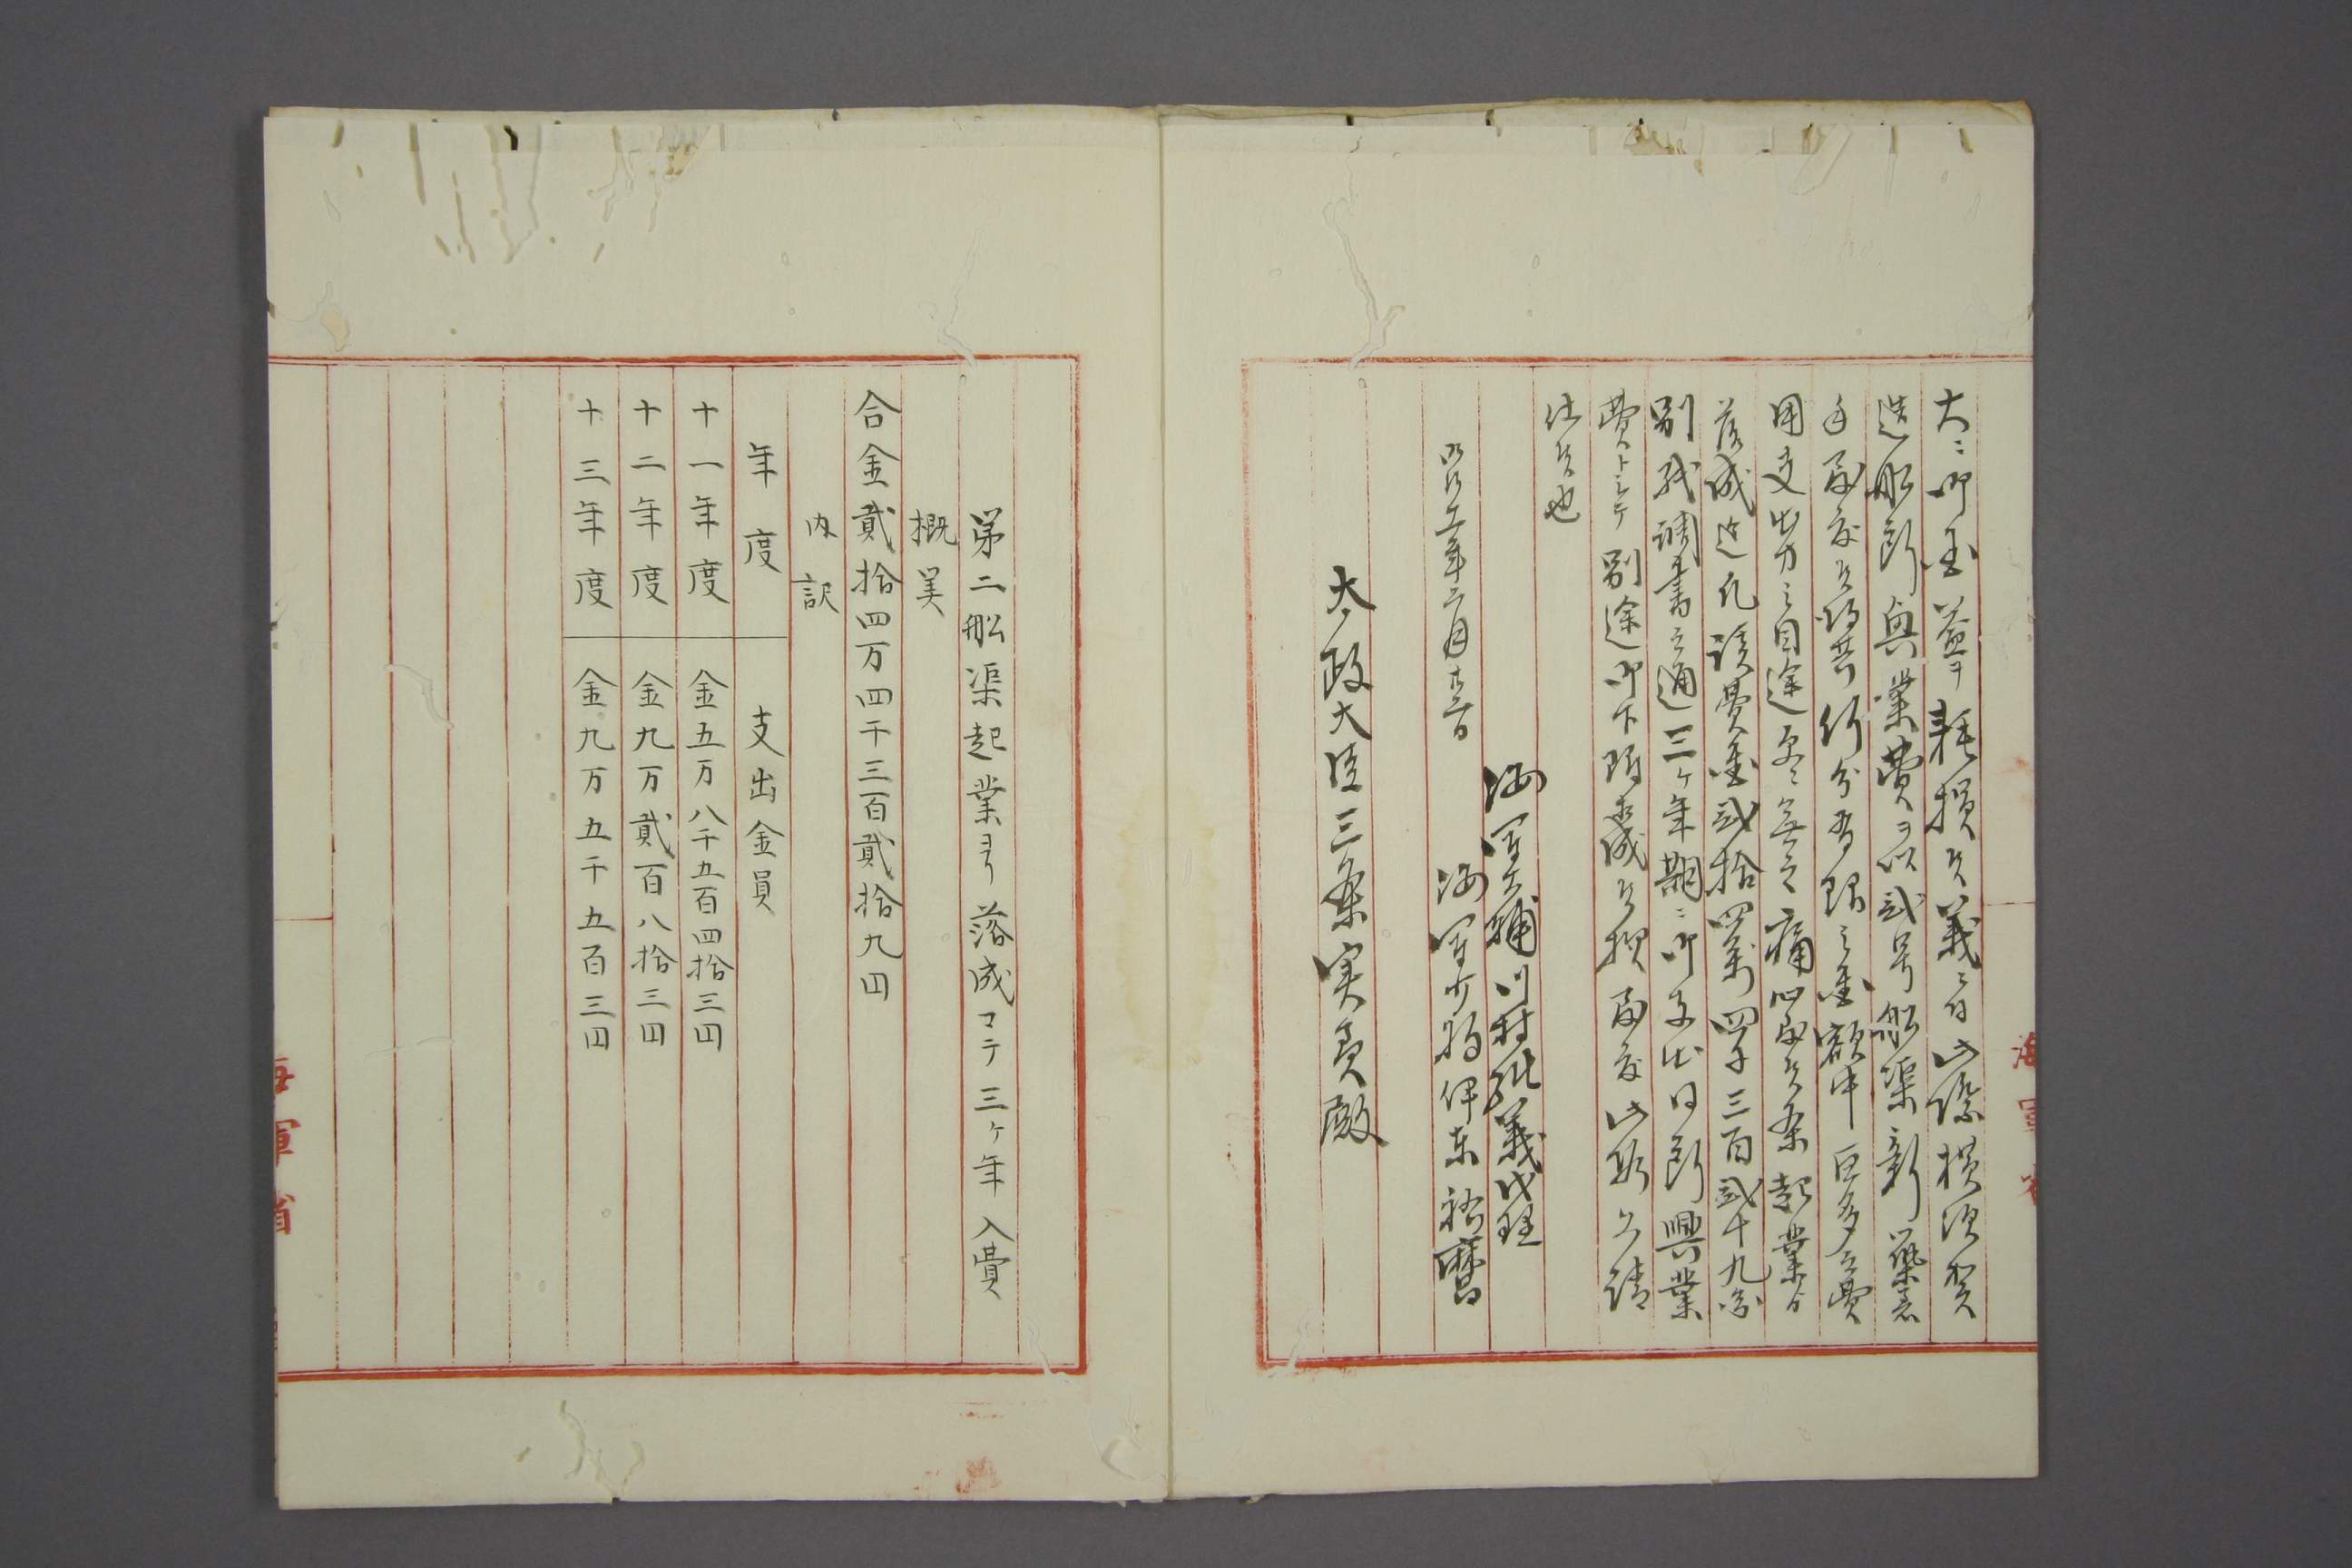 大ニ御国益ヲ耗損候義ニ付此際横須賀
造船所興業費ヲ以弐号船渠新築着
手致度候得共行分有限之金額中巨多之費
用支出方之目途更ニ無之痛心罷在候条起業ヨリ
落成迄凡該費金弐拾四万四千三百弐十九円
別紙調書之通三ヶ年期ニ御支出同所興業
費トシテ別途御下附相成候様致度此段上請
仕候也
海軍大輔川村純義代理
明治十一年三月廿五日 海軍少将伊東祐麿
太政大臣三条実美殿
海軍省
第二船渠起業ヨリ落成マテ三ヶ年入費
概算
合金貳拾四万四千三百貳拾九円
内訳
年度 支出金員
十一年度 金五万八千五百四拾三円
十二年度 金九万貳百八拾三円
十三年度 金九万五千五百三円
海軍省